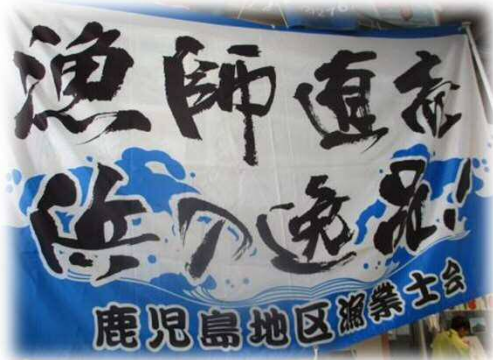 漁師直売
浜の逸品!
鹿児島地区漁業士会